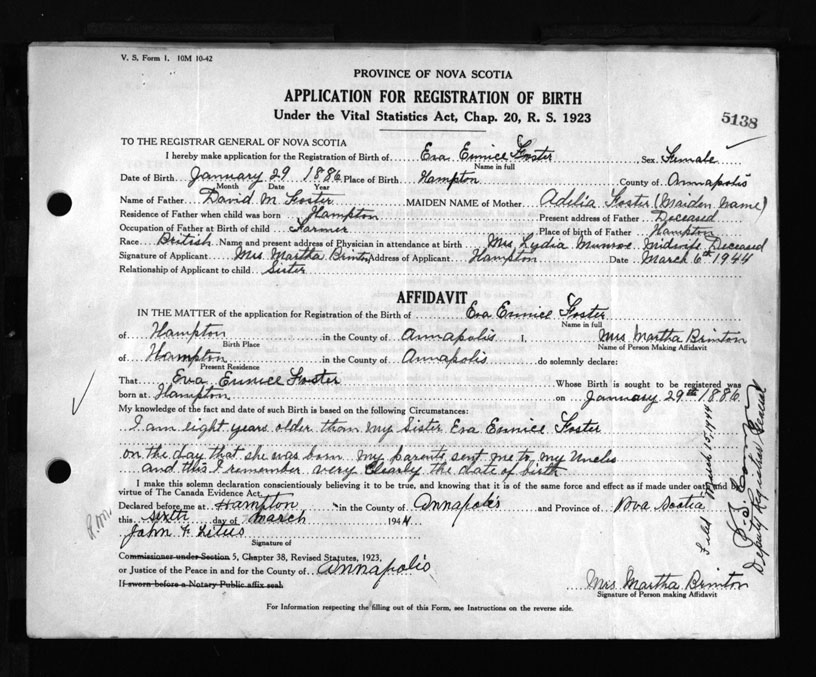 V. S. Form 1. 10M 10-42
PROVINCE OF NOVA SCOTIA
APPLICATION FOR REGISTRATION OF BIRTH
Under the Vital Statistics Act, Chap. 20, R. S. 1923
5138
TO THE REGISTRAR GENERAL OF NOVA SCOTIA
I hereby make application for the Registration of Birth of Eva Eunice Foster Sex Female
Name in full
Date of Birth January 29 1886 Place of Birth Hampton County of Annapolis
Month Date Year
Name of Father David M. Foster MAIDEN NAME of Mother Adelia Foster (Maiden Name)
Residence of Father when child was born Hampton Present address of Father Deceased
Occupation of Father at Birth of child Farmer Place of birth of Father Hampton
Race British Name and present address of Physician in attendance at birth Mrs. Lydia Munroe. Midwife Deceased
Signature of Applicant Mrs. Martha Brinton Address of Applicant Hampton Date March 6th 1944
Relationship of Applicant to child Sister
AFFIDAVIT
IN THE MATTER of the application for Registration of the Birth of Eva Eunice Foster
Name in full
of Hampton in the County of Annapolis I, Mrs Martha Brinton
Birth Place Name of Person Making Affidavit
of Hampton in the County of Annapolis do solemnly declare:
Present Residence
That Eva Eunice Foster Whose Birth is sought to be registered was
born at Hampton on January 29th 1886
My knowledge of the fact and date of such Birth is based on the following Circumstances:
I am eight years older than my Sister Eva Eunice Foster
on the day that she was born my parents sent me to my Uncles
and this I remember very clearly the date of birth
I make this solemn declaration conscientiously believing it to be true, and knowing that it is of the same force and effect as if made under oath and by
virtue of The Canada Evidence Act.
Declared before me at Hampton in the County of Annapolis and Province of Nova Scotia
this sixth day of March 1944
John F. Titus
Signature of
Commissioner under Section 5, Chapter 38, Revised Statutes, 1923,
or Justice of the Peace in and for the County of Annapolis
If sworn before a Notary Public affix seal.
Mrs Martha Brinton
Signature of Person making Affidavit
For Information respecting the filling out of this Form, see Instructions on the reverse side.
Filed March 15, 1944
Deputy Registrar General